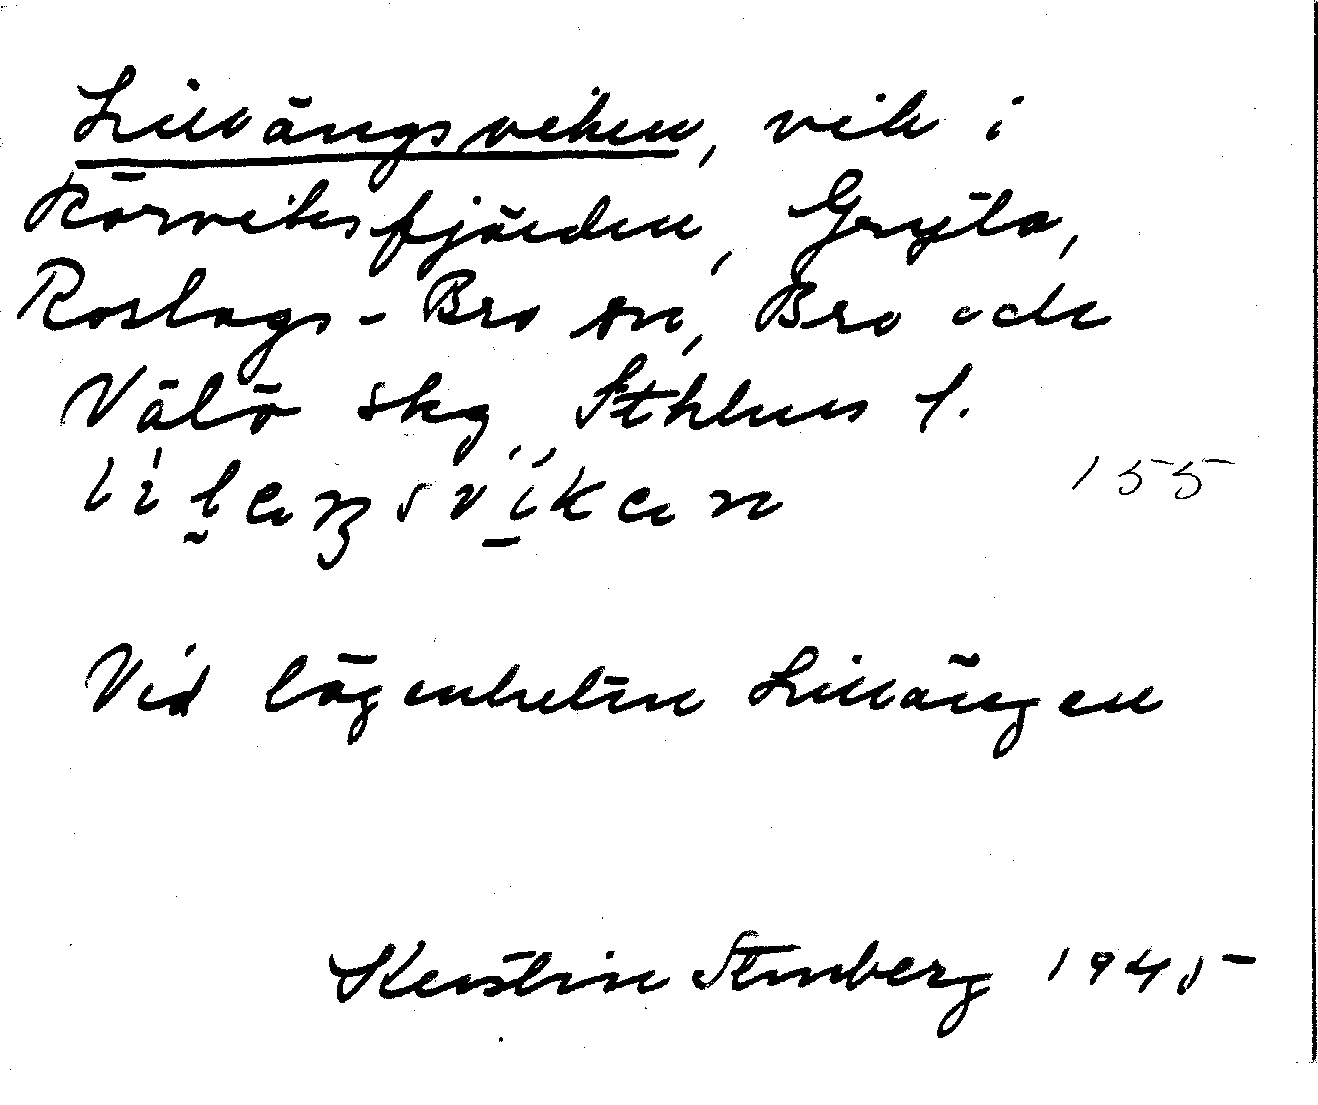 Lillängsviken, vik i
Körviksfjärden, Gryta,
Roslags-Bro sn, Bro och
Vätö skg, Sthlms l.
155
Vid lägenheten Lillängen
Kerstin Stenberg 1945